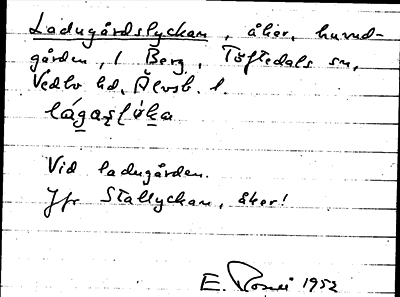 Ladugårdslyckan, åker, huvud-
gården, 1 Berg, Töftedals sn,
Vedbo hd, Älvsb. l.
lágaşlýka
Vid ladugården.
Jfr Stallyckan, åker!
E. 1952